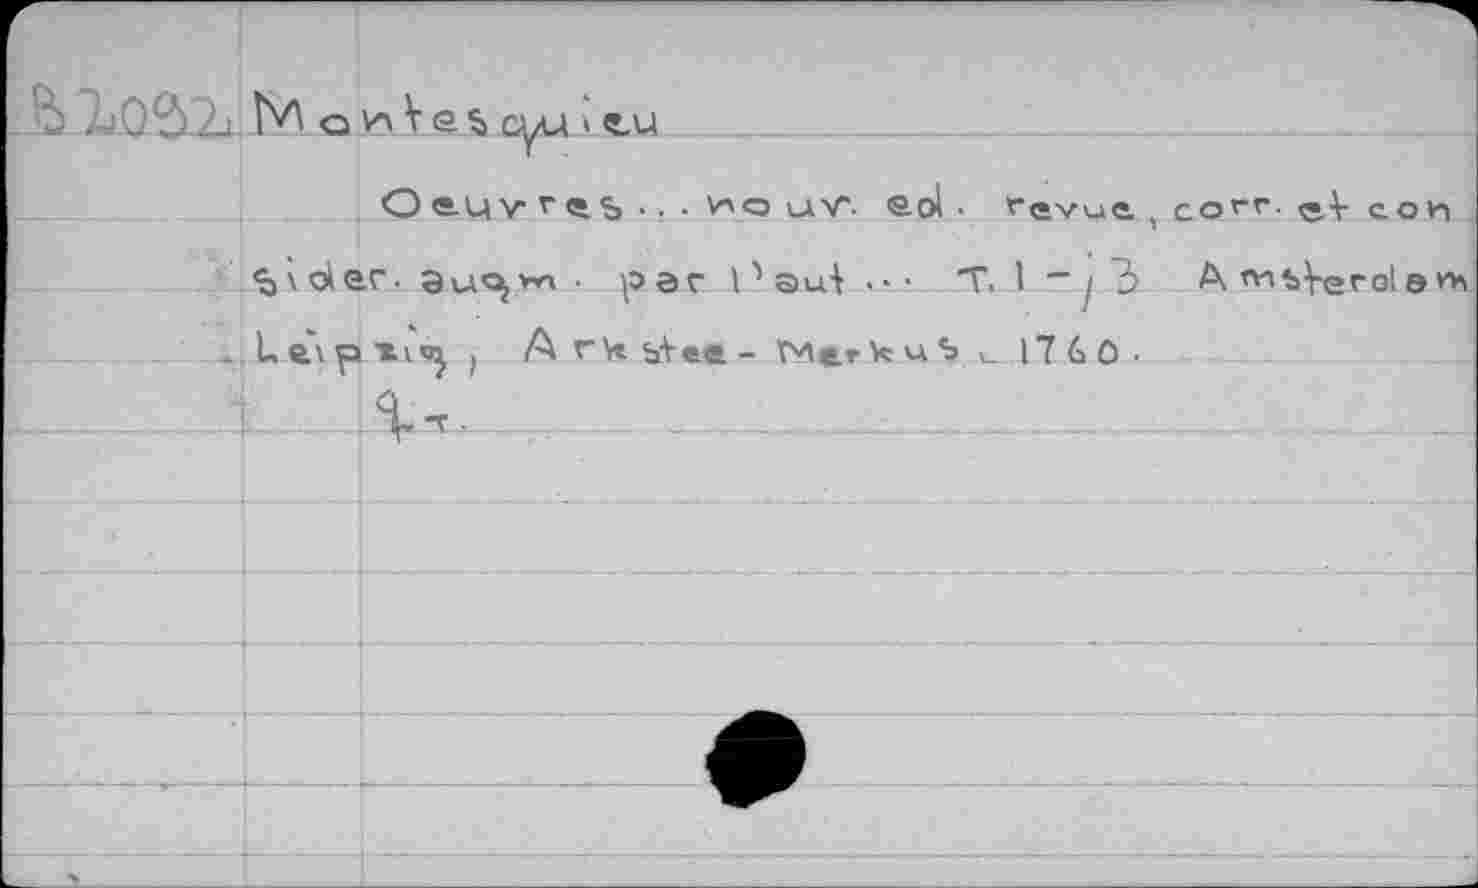 B 2092 Montesquieu
Oeuvres ... nouv. ed. revue, corr. et con
sider. augm. par l'aut ... T. 1 - 3 Amsterdam
Leipzig, Arkstee - Merkus 1760.